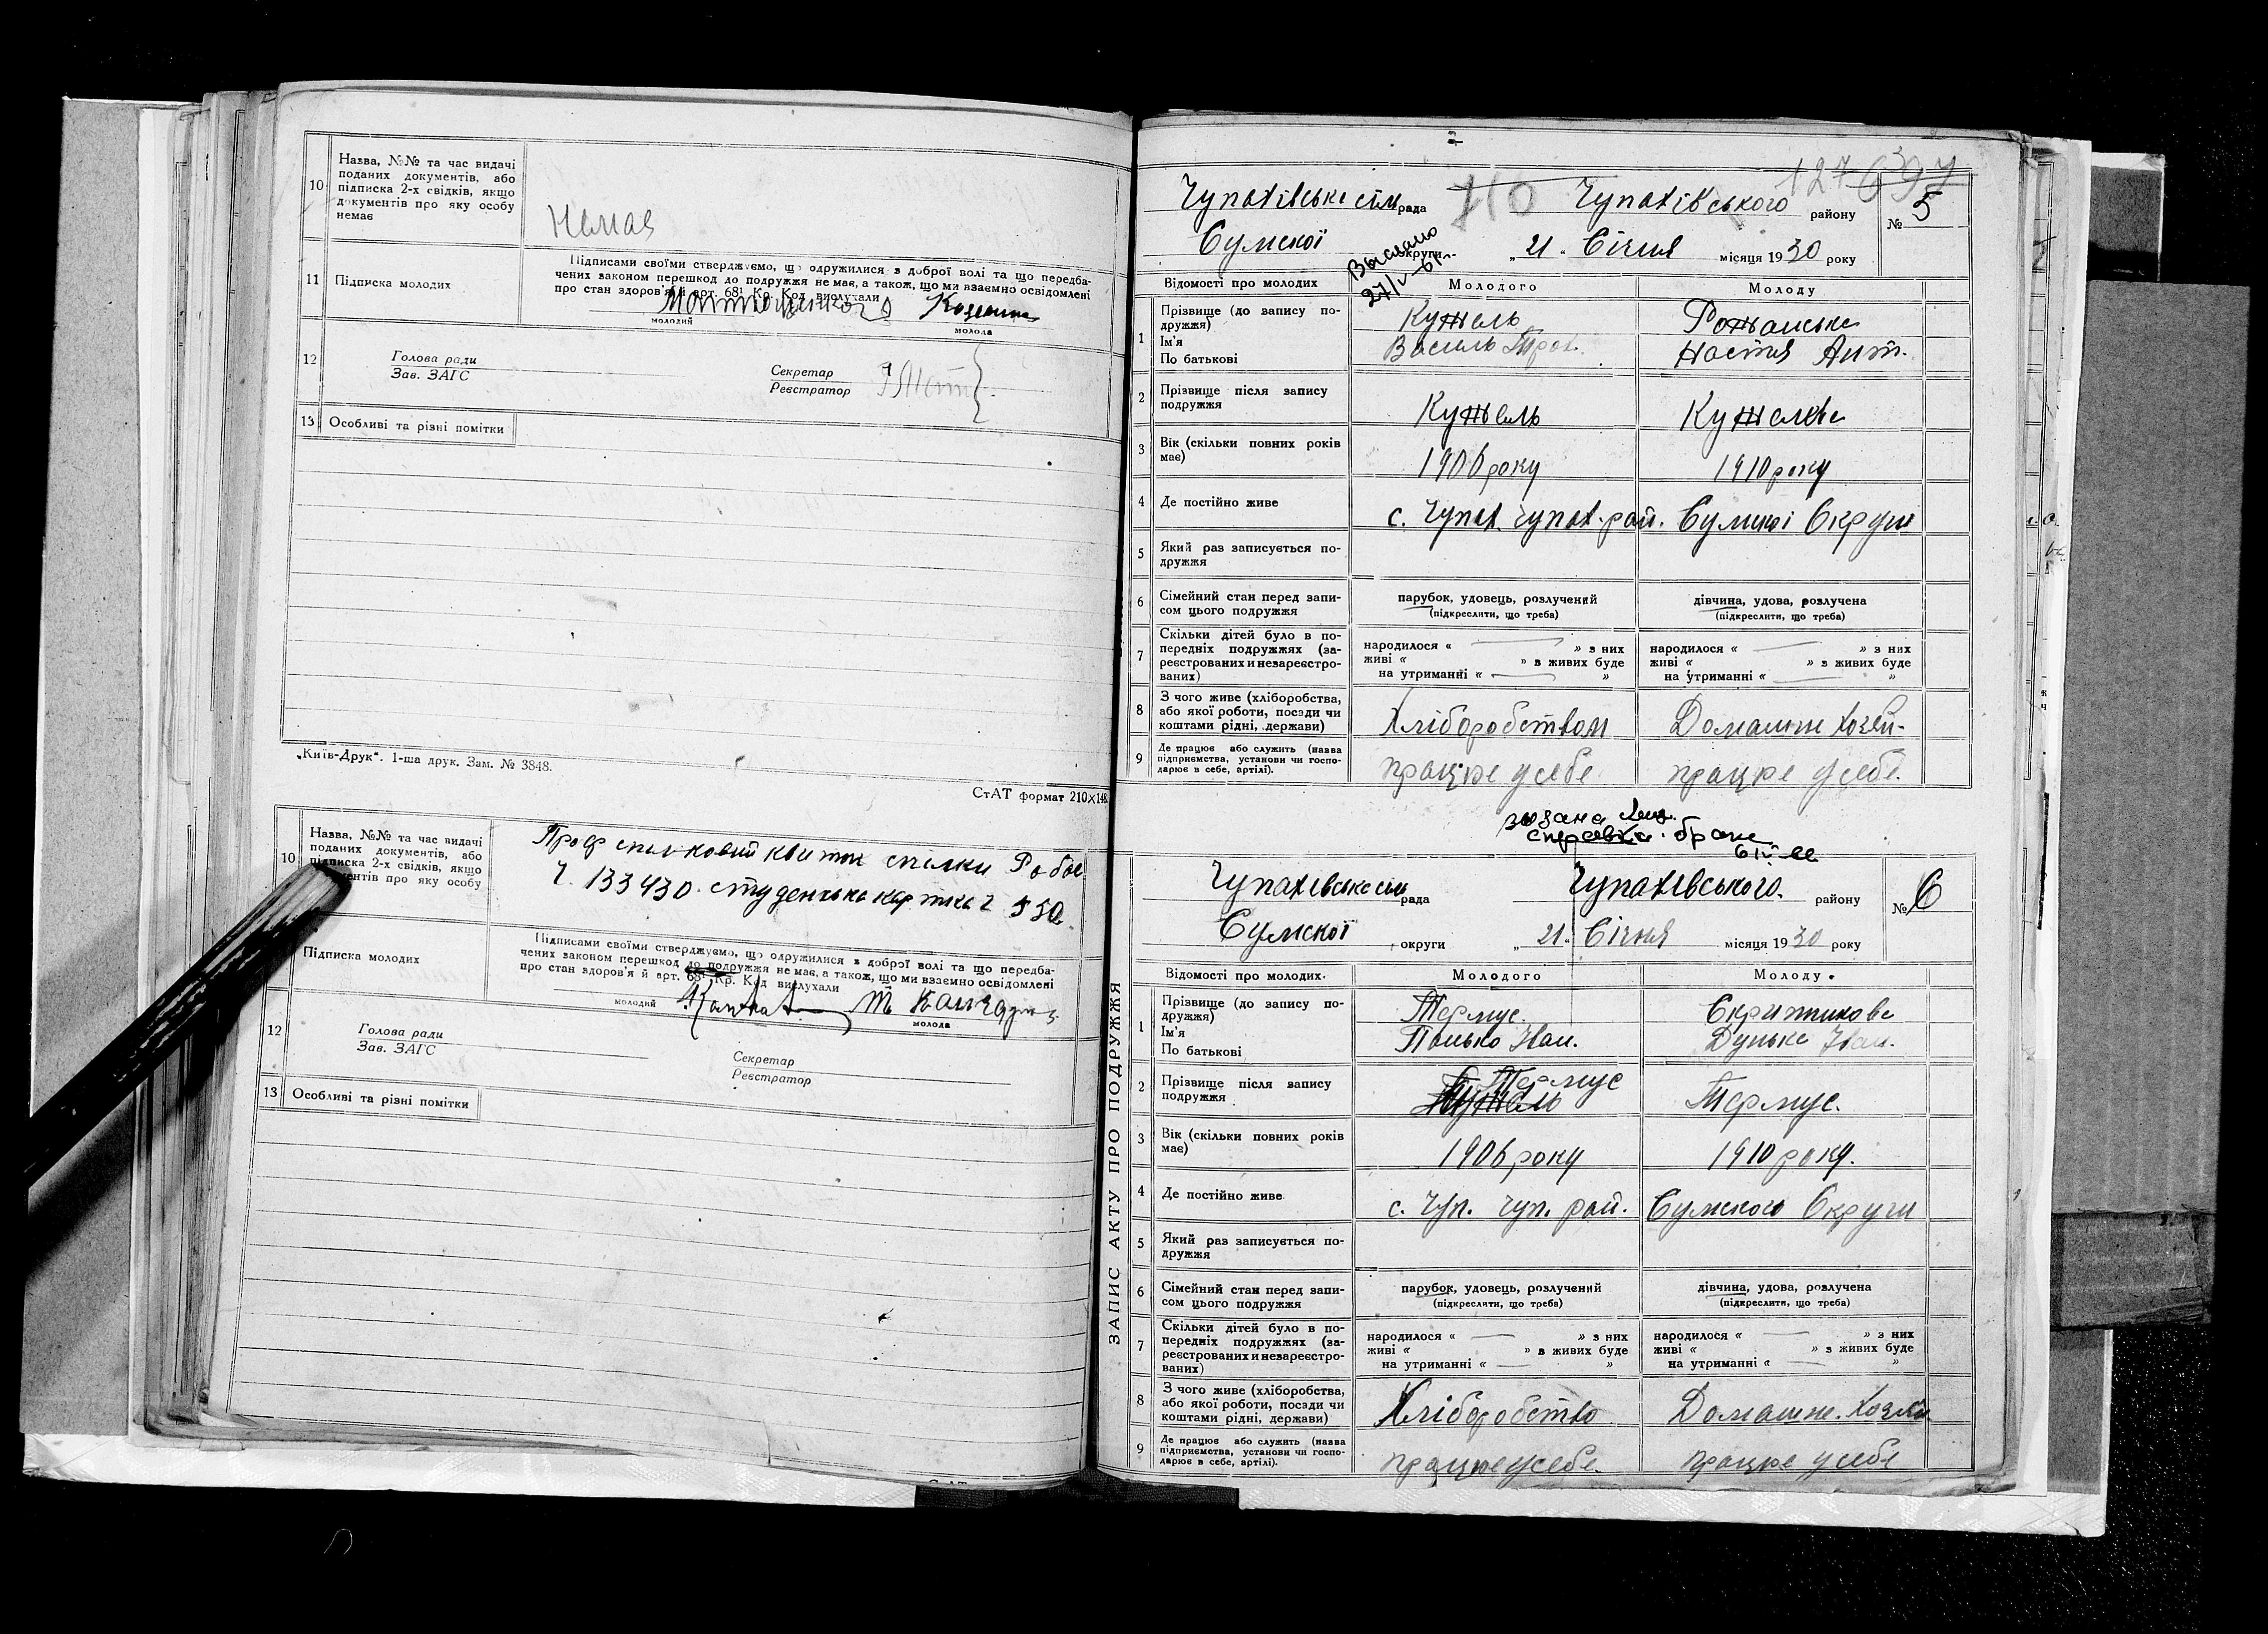 10
Назва, №№ та час видачі
поданих документів, або
підписка 2-х свідків, якщо
документів про яку особу
немає
Немає
11 Підписка молодих
Підписами своїми стверджуємо, що одружилися з доброї волі та що передба-
чених законом перешкод до подружжя немає, а також, що ми взаємно освідомлені
про стан здоров'я й арт. 68¹ Кр. Код вислухали
молодий
молода
12
Голова ради
Зав. ЗАГС
Секретар
Реєстратор
13 Особливі та різні помітки
„Київ-Друк“. 1-ша друк. Зам. № 3848.
СтАТ формат 210×148
10
Назва, №№ та час видачі
поданих документів, або
підписка 2-х свідків, якщо
ментів про яку особу
Проф спілковий квиток спілки Робос
Ч. 133430. студенська картка ч 550
Підписка молодих
Підписами своїми стверджуємо, що одружилися з доброї волі та що передба-
чених законом перешкод до подружжя немає, а також, що ми взаємно освідомлені
про стан здоров'я й арт. 68¹ Кр. Код вислухали
молодий
молода
12
Голова ради
Зав. ЗАГС
Секретар
Реєстратор
13 Особливі та різні помітки
ЗАПИС АКТУ ПРО ПОДРУЖЖЯ
Чупахівська сіль рада Чупахівського району № 5
Сумської округи „ 21 “ Січня місяця 1930 року
Выслано
Відомості про молодих Молодого Молоду
1
Прізвище (до запису по-
дружжя)
Ім'я
По батькові
Кужель
Василь Троф.
Рожанська
Настя Ант.
2
Прізвище після запису
подружжя
Кужель
Кужелева
3
Вік (скільки повних років
має)
1906 року
1910 року
4 Де постійно живе
с. Чупах. Чупах. рай. Сумської Округи
5
Який раз записується по-
дружжя
6
Сімейний стан перед запи-
сом цього подружжя
парубок, удовець, розлучений
(підкреслити, що треба)
дівчина, удова, розлучена
(підкреслити, що треба)
7
Скільки дітей було в по-
передніх подружжях (за-
реєстрованих и незареєстро-
ваних)
народилося « » з них
живі « » з живих буде
на утриманні « »
народилося « » з них
живі « » з живих буде
на утриманні « »
8
З чого живе (хліборобства,
або якої роботи, посади чи
коштами рідні, держави)
Хліборобством
Домашне хозяй-
9
Де працює або служить (назва
підприємства, установи чи госпо-
дарює в себе, артілі).
працює у себе
працює у себе.
справка. брак
Чупахівська сіль рада Чупахівського. району № 6
Сумської округи „ 21 “ Січня місяця 1930 року
Відомості про молодих. Молодого Молоду
1
Прізвище (до запису по-
дружжя)
Ім'я
По батькові
Термус.
Панько Іван.
Скрипникова
Дунька Іван.
2
Прізвище після запису
подружжя
Термус
Термус.
3
Вік (скільки повних років
має)
1906 року
1910 року.
4 Де постійно живе
с. Чуп. Чуп. рай. Сумської Округи
5
Який раз записується по-
дружжя
6
Сімейний стан перед запи-
сом цього подружжя
парубок, удовець, розлучений
(підкреслити, що треба)
дівчина, удова, розлучена
(підкреслити, що треба)
7
Скільки дітей було в по-
передніх подружжях (за-
реєстрованих и незареєстро-
ваних)
народилося « » з них
живі « » з живих буде
на утриманні « »
народилося « » з них
живі « » з живих буде
на утриманні « »
8
З чого живе (хліборобства,
або якої роботи, посади чи
коштами рідні, держави)
Хліборобство
Домашне. Хозяй
9
Де працює або служить (назва
підприємства, установи чи госпо-
дарює в себе, артілі).
працює у себе.
працює у себе